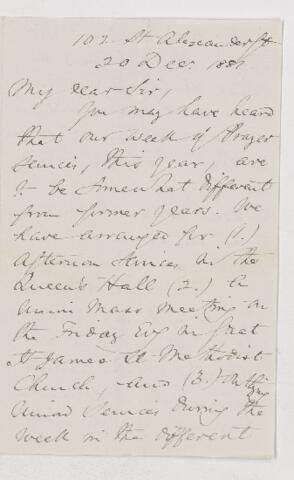 102 St Alexander St
20 Dec. 188
My dear Sir,
You may have heard
that our Week of Prayer
services, this year, are
to be somewhat different
from former years. We
have arranged for (1.)
Afternoon Services in the
Queen's Hall (2.) an
Union Mass Meeting on
the Friday Evg in Great
St James St. Methodist
Church, and (3.)
Union Services during the
week in the different